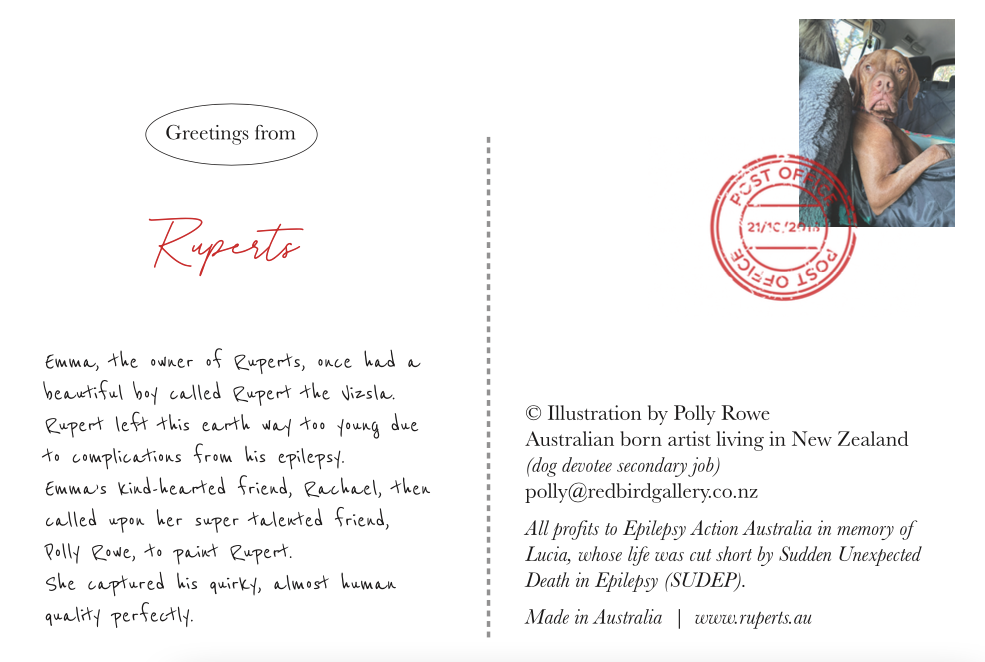 Greetings from
Ruperts
Emma, the owner of Ruperts, once had a
beautiful boy called Rupert the Vizsla.
Rupert left this earth way too young due
to complications from his epilepsy.
Emma's kind-hearted friend, Rachael, then
called upon her super talented friend,
Polly Rowe, to paint Rupert.
She captured his quirky, almost human
quality perfectly.
POST OFFICE
21/10/2018
POST OFFICE
© Illustration by Polly Rowe
Australian born artist living in New Zealand
(dog devotee secondary job)
polly@redbirdgallery.co.nz
All profits to Epilepsy Action Australia in memory of
Lucia, whose life was cut short by Sudden Unexpected
Death in Epilepsy (SUDEP).
Made in Australia | www.ruperts.au